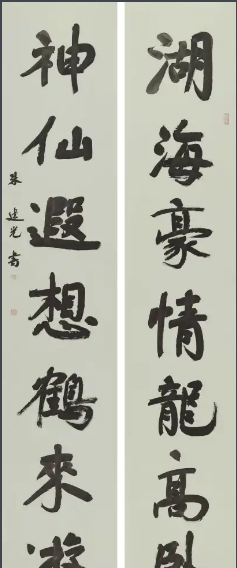 湖海豪情龍高臥
神仙遐想鶴來游
朱建光書